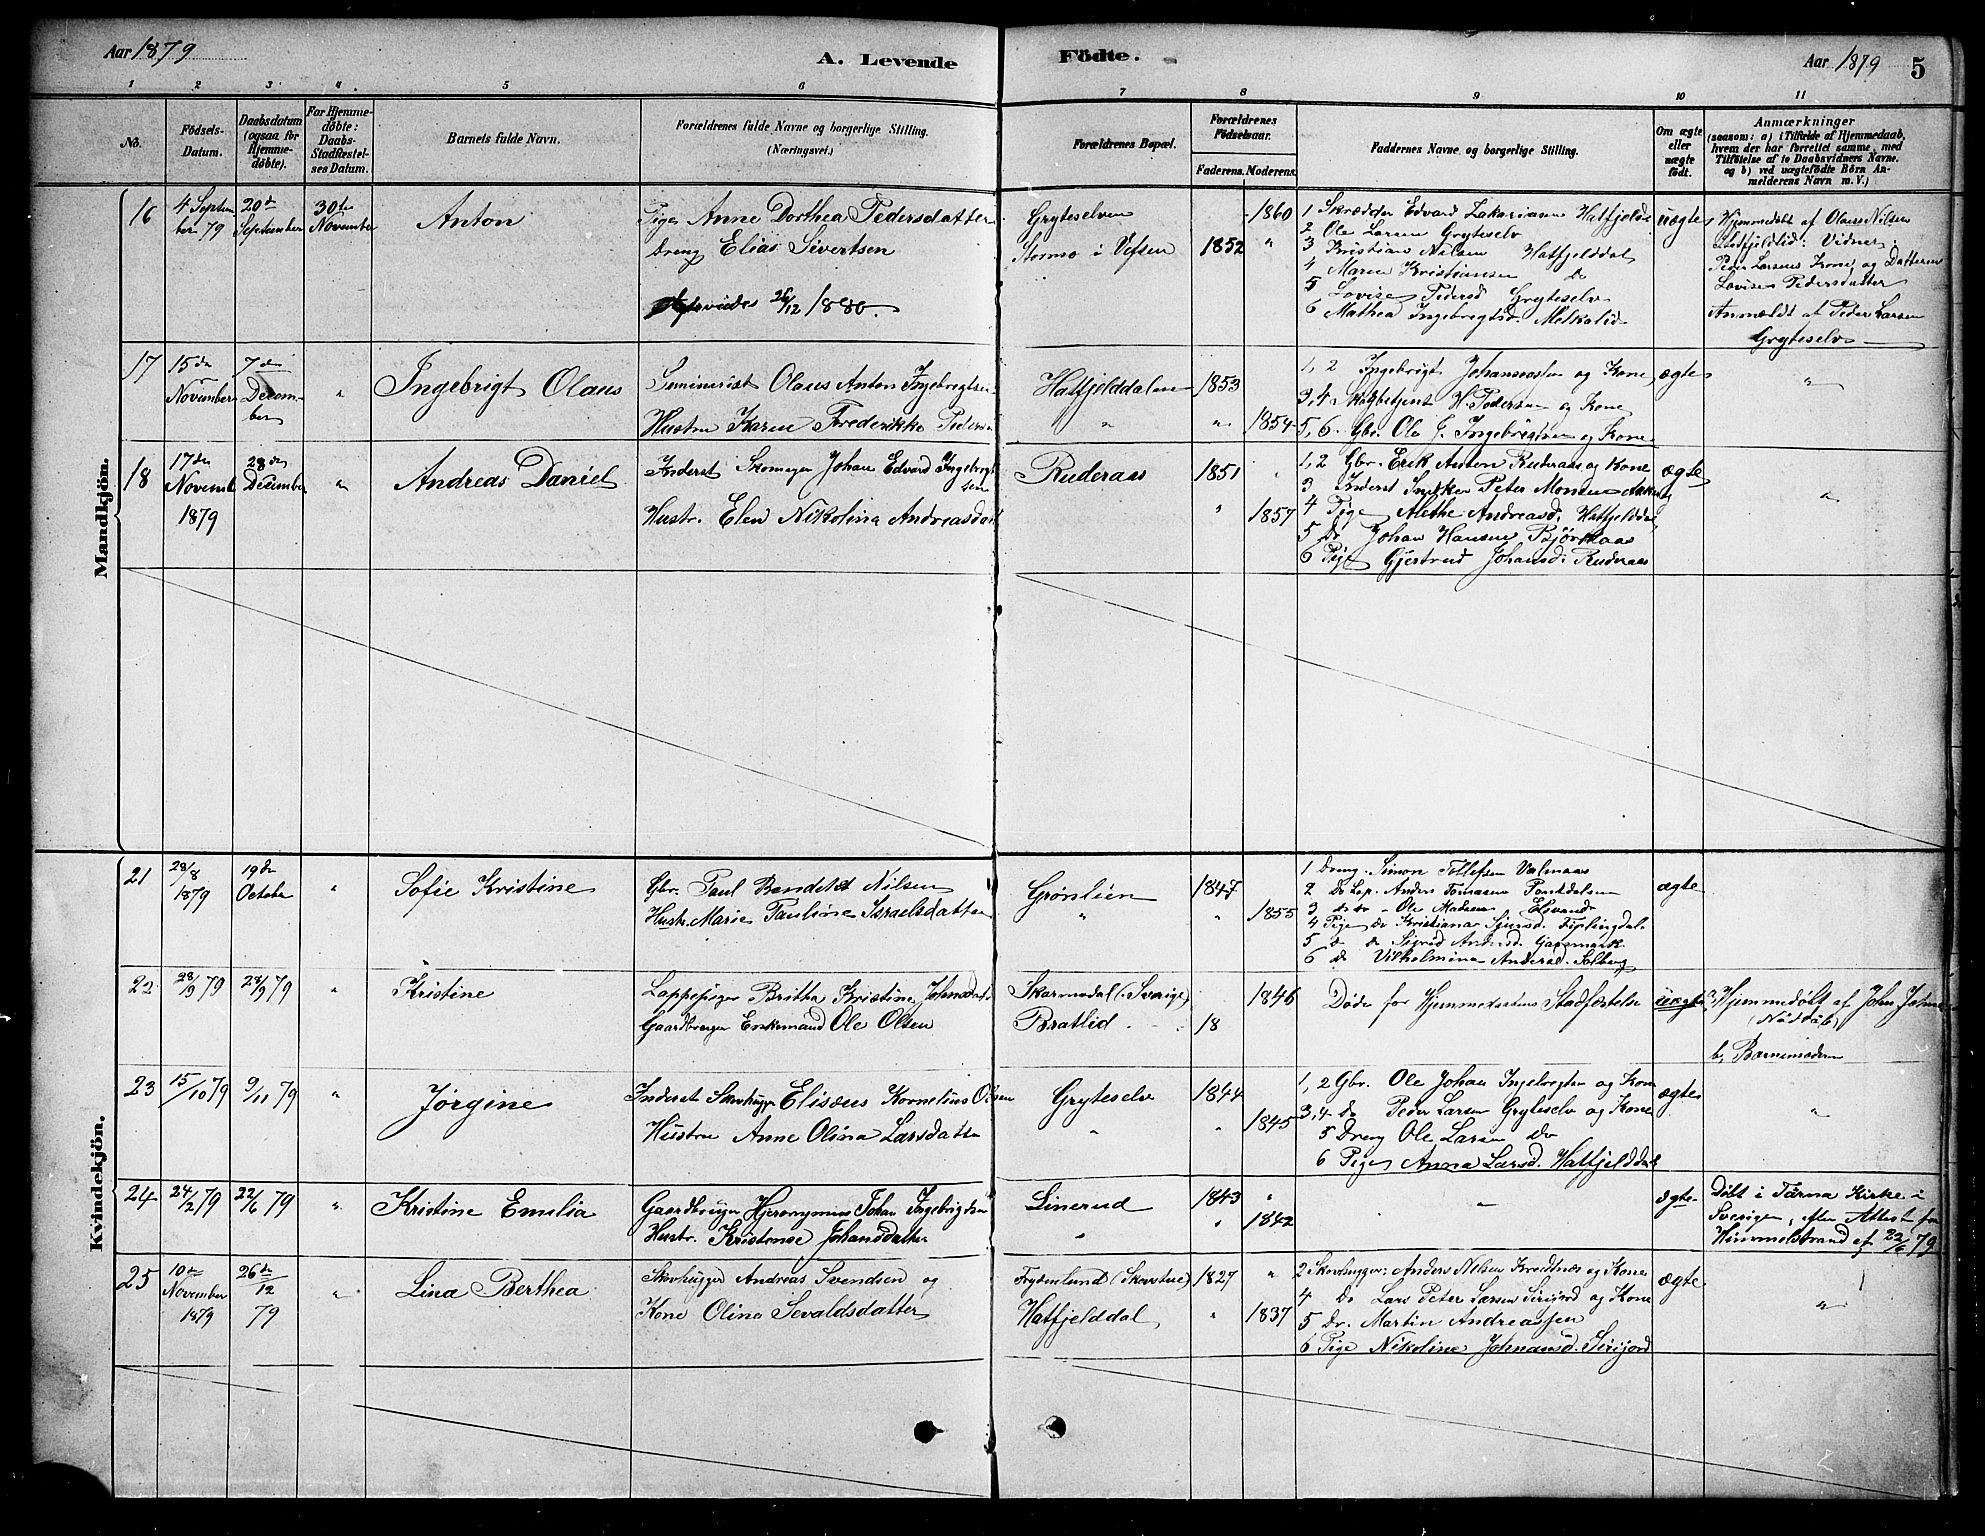 Aar 1879
A. Levende Födte.
Aar 1879 5
1 2 3 4. 5 6 7 8 9 10 11
No. Födsels-Datum. Daabsdatum (ogsaa for Hjemme-döbte). For Hjemme-döbte: Daabs-Stadfæstel-ses Datum. Barnets fulde Navn. Forældrenes fulde Navne og borgerlige Stilling. (Næringsvei.) Forældrenes Bopæl. Forældrenes Födselsaar. Faderens. Moderens. Faddernes Navne og borgerlige Stilling. Om ægte eller uægte födt. Anmærkninger (saasom: a) i Tilfælde af Hjemmedaab, hvem der har forrettet samme, med Tilföielse af to Daabsvidners Navne. og b) ved uægtefödte Börn Anmelderens Navn m. V.)
Mandkjön.
16 4 September 79 20de September 30te November Anton
Pige Anne Dorthea Pedersdatter
Dreng Elias Sivertsen
26/12 1880.
Gryteselven 1860
Stormo i Vefsen 1852 "
1 Skrædder Edvard Zakariasen Hatfjeldd.
2 Ole Larsen Gryteselv
3 Kristian Nilsen Hatfjelddal
4 Maren Kristiansen Do
5 Lovise Pedersd Gryteselv
6 Mathea Ingebrigtsd.
uægte
Hjemmedøbt af Olaus Nilsen
Vidner:
Peder Larsens Kone og Datteren
Lovise Pedersdatter
Anmældt af Peder Larsen
Gryteselv
17 15de November 7de December " Ingebrigt Olaus
Seminarist Olaus Anton Ingebrigtsen
Hustru Karen Frederikke Pedersen
Hatfjelddalen 1853
" " 1854
1, 2 Ingebrigt Johannessen og Kone
3, 4 Skogbetjent H. Pedersen og Kone
5, 6. Gbr. Ole G. Ingebrigtsen og Kone
ægte "
18 17de November 1879 28de December " Andreas Daniel
Inderst Skomager Johan Edvard Ingebrigtsen
Hustr. Elen Nikolina Andreasdat
Ruderaas 1851 "
" 1857
1, 2 Gbr. Erik Anton Ruderaas og Kone
3 Inderst Snekker Peter Monsen
4 Pige Alethe Andreasd. Hatfjelddal
5 Do Johan Hansen Bjørkaas
6 Pige Gjertrud Johansd: Ruderaas
ægte "
Kvindekjön.
21 28/8 1879 19de October " Sofie Kristine
Gbr. Paul Bendikt Nilsen
Hustr. Marie Pauline Israelsdatter
Grønlien 1847
" " 1855
1 Dreng. Simon Tollefsen Valmaas
2 Do Lap. Anders Tomassen
3 do do " Ole Madsen Elvand
4 Pige do Kristiana
5 do do Sigrid
6 do Vilhelmina Andersd. Solberg
ægte
22 28/9 79 28/9 79 " Kristine
Lappepigen Britha Kristine Johnsdat
Gaardbruger Enkemand Ole Olsen
Skarmodal (Sverige) 1846
Bratlid 18
Døde før Hjemmedaabens Stadfæstelse
uægte
Hjemmedøbt af John
(Nøddåb)
b, Barnemoderen
23 15/10 79 9/11 79 " Jørgine
Inderst Skovhugger Elisæus Kornelius Olsen
Hustru Anne Olina Larsdatter
Gryteselv 1844
" " 1845
1, 2 Gbr. Ole Johan Ingebrigtsen og Kone
3, 4 do Peder Larsen Gryteselv og Kone
5 Dreng Ole Larsen do
6 Pige Anna Larsd. Hatfjelddal
ægte "
24 24/2 79 22/6 79 " Kristine Emilia
Gaardbruger Hjeronymus Johan Ingebrigtsen
Hustr. Kristense Johansdatter
Linerud 1843 "
" " 1842
"
ægte
Døbt i Tärna Kirke i
Sverige, efter Attest fra
Himmelstrand af 22/6 79
25 10de November 1879 26de/12 79 " Lina Berthea
Skovhugger Andreas Svendsen og
Kone Olina Sevaldsdatter
Frydenlund (Skovstue) 1827 "
Hatfjelddal " 1837
2 Skovhugger: Anders Nilsen Kredtnæs og Kone
4 Do Lars Peter Larsen Sirijord og Kone
5 Dr. Martin Andreassen
6 Pige Nikoline Johansd. Sirijord
ægte "